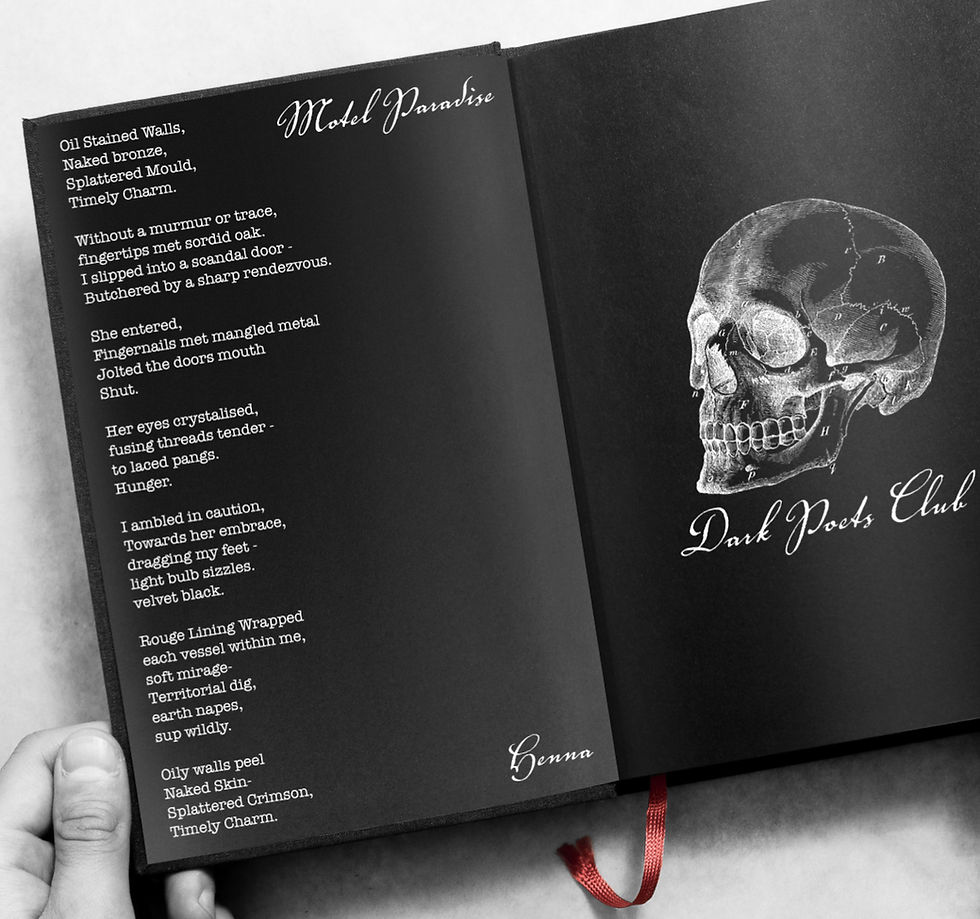 Motel Paradise
Oil Stained Walls,
Naked bronze,
Splattered Mould,
Timely Charm.
Without a murmur or trace,
fingertips met sordid oak.
I slipped into a scandal door -
Butchered by a sharp rendezvous.
She entered,
Fingernails met mangled metal
Jolted the doors mouth
Shut.
Her eyes crystalised,
fusing threads tender -
to laced pangs.
Hunger.
I ambled in caution,
Towards her embrace,
dragging my feet -
light bulb sizzles.
velvet black.
Rouge Lining Wrapped
each vessel within me,
soft mirage-
Territorial dig,
earth napes,
sup wildly.
Oily walls peel
Naked Skin-
Splattered Crimson,
Timely Charm.
Henna
Dark Poets Club